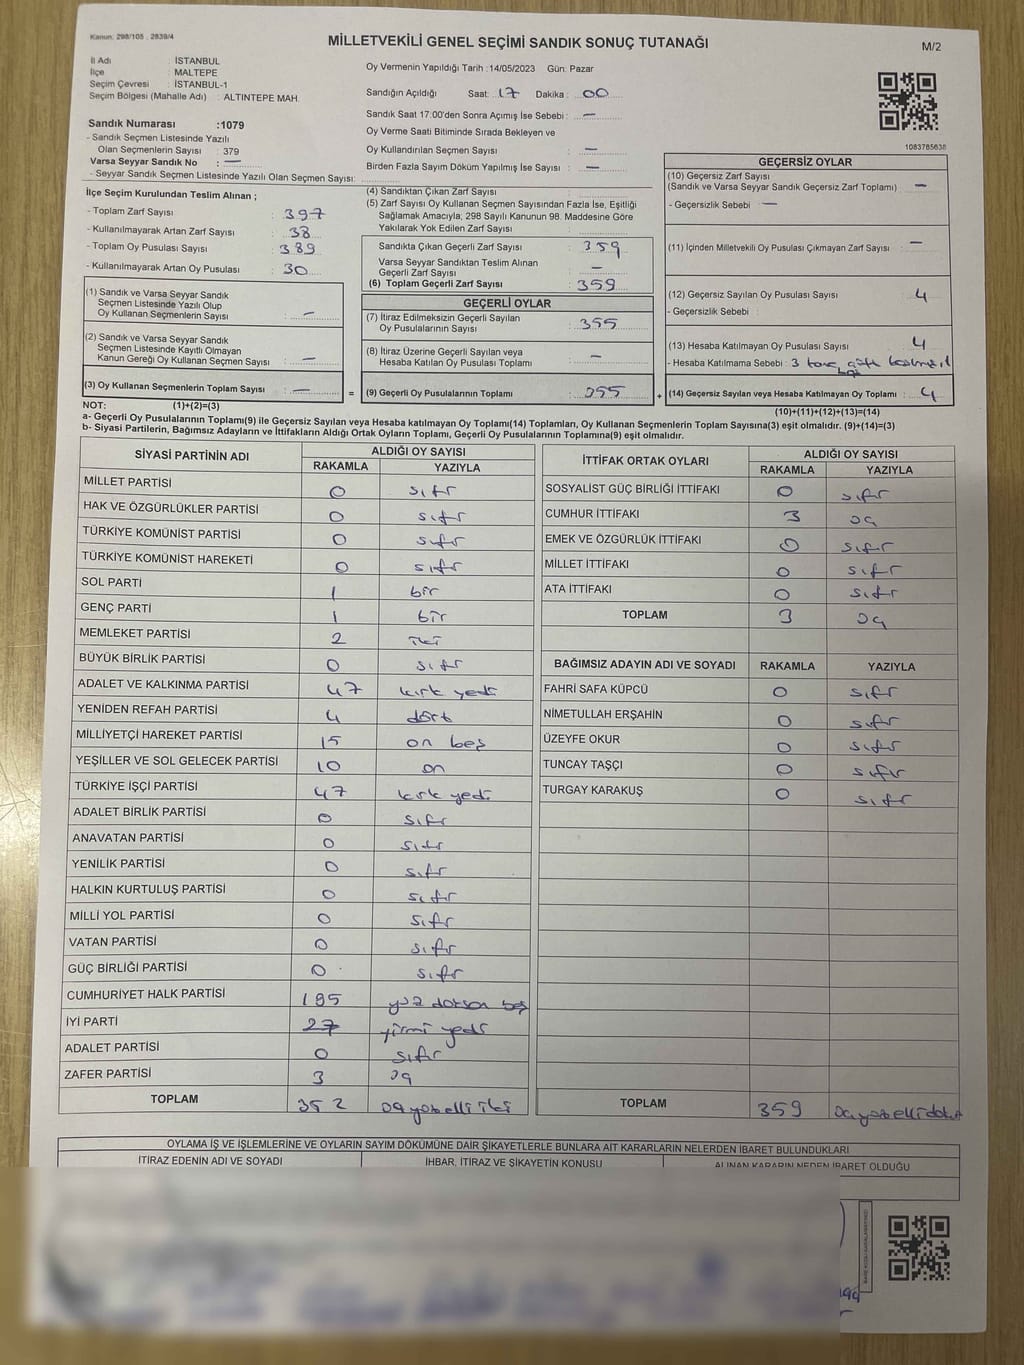 Kanun: 298/105 , 2839/4
MİLLETVEKİLİ GENEL SEÇİMİ SANDIK SONUÇ TUTANAĞI
M/2
İl Adı : İSTANBUL
İlçe : MALTEPE
Seçim Çevresi : İSTANBUL-1
Seçim Bölgesi (Mahalle Adı) : ALTINTEPE MAH.
Sandık Numarası :1079
- Sandık Seçmen Listesinde Yazılı
Olan Seçmenlerin Sayısı : 379
Varsa Seyyar Sandık No : —
- Seyyar Sandık Seçmen Listesinde Yazılı Olan Seçmen Sayısı:
Oy Vermenin Yapıldığı Tarih :14/05/2023 Gün: Pazar
Sandığın Açıldığı Saat: 17 Dakika : 00
Sandık Saat 17:00'den Sonra Açımış İse Sebebi : —
Oy Verme Saati Bitiminde Sırada Bekleyen ve
Oy Kullandırılan Seçmen Sayısı : —
Birden Fazla Sayım Döküm Yapılmış İse Sayısı : —
1083785638
İlçe Seçim Kurulundan Teslim Alınan ;
- Toplam Zarf Sayısı : 397
- Kullanılmayarak Artan Zarf Sayısı : 38
- Toplam Oy Pusulası Sayısı : 389
- Kullanılmayarak Artan Oy Pusulası : 30
(1) Sandık ve Varsa Seyyar Sandık
Seçmen Listesinde Yazılı Olup
Oy Kullanan Seçmenlerin Sayısı : —
(2) Sandık ve Varsa Seyyar Sandık
Seçmen Listesinde Kayıtlı Olmayan
Kanun Gereği Oy Kullanan Seçmen Sayısı : —
(3) Oy Kullanan Seçmenlerin Toplam Sayısı : —
(4) Sandıktan Çıkan Zarf Sayısı :
(5) Zarf Sayısı Oy Kullanan Seçmen Sayısından Fazla İse, Eşitliği
Sağlamak Amacıyla; 298 Sayılı Kanunun 98. Maddesine Göre
Yakılarak Yok Edilen Zarf Sayısı :
Sandıkta Çıkan Geçerli Zarf Sayısı : 359
Varsa Seyyar Sandıktan Teslim Alınan
Geçerli Zarf Sayısı : —
(6) Toplam Geçerli Zarf Sayısı : 359
GEÇERLİ OYLAR
(7) İtiraz Edilmeksizin Geçerli Sayılan
Oy Pusulalarının Sayısı : 355
(8) İtiraz Üzerine Geçerli Sayılan veya
Hesaba Katılan Oy Pusulası Toplamı : —
= (9) Geçerli Oy Pusulalarının Toplamı : 355
GEÇERSİZ OYLAR
(10) Geçersiz Zarf Sayısı
(Sandık ve Varsa Seyyar Sandık Geçersiz Zarf Toplamı) : —
- Geçersizlik Sebebi : —
(11) İçinden Milletvekili Oy Pusulası Çıkmayan Zarf Sayısı : —
(12) Geçersiz Sayılan Oy Pusulası Sayısı : 4
- Geçersizlik Sebebi :
(13) Hesaba Katılmayan Oy Pusulası Sayısı : 4
- Hesaba Katılmama Sebebi : 3
+ (14) Geçersiz Sayılan veya Hesaba Katılmayan Oy Toplamı : 4
NOT: (1)+(2)=(3)
(10)+(11)+(12)+(13)=(14)
a- Geçerli Oy Pusulalarının Toplamı(9) ile Geçersiz Sayılan veya Hesaba katılmayan Oy Toplamı(14) Toplamları, Oy Kullanan Seçmenlerin Toplam Sayısına(3) eşit olmalıdır. (9)+(14)=(3)
b- Siyasi Partilerin, Bağımsız Adayların ve İttifakların Aldığı Ortak Oyların Toplamı, Geçerli Oy Pusulalarının Toplamına(9) eşit olmalıdır.
SİYASİ PARTİNİN ADI ALDIĞI OY SAYISI
RAKAMLA YAZIYLA
MİLLET PARTİSİ 0 sıfır
HAK VE ÖZGÜRLÜKLER PARTİSİ 0 sıfır
TÜRKİYE KOMÜNİST PARTİSİ 0 sıfır
TÜRKİYE KOMÜNİST HAREKETİ 0 sıfır
SOL PARTİ 1 bir
GENÇ PARTİ 1 bir
MEMLEKET PARTİSİ 2 iki
BÜYÜK BİRLİK PARTİSİ 0 sıfır
ADALET VE KALKINMA PARTİSİ 47 kırk yedi
YENİDEN REFAH PARTİSİ 4 dört
MİLLİYETÇİ HAREKET PARTİSİ 15 on beş
YEŞİLLER VE SOL GELECEK PARTİSİ 10 on
TÜRKİYE İŞÇİ PARTİSİ 47 kırk yedi
ADALET BİRLİK PARTİSİ 0 sıfır
ANAVATAN PARTİSİ 0 sıfır
YENİLİK PARTİSİ 0 sıfır
HALKIN KURTULUŞ PARTİSİ 0 sıfır
MİLLİ YOL PARTİSİ 0 sıfır
VATAN PARTİSİ 0 sıfır
GÜÇ BİRLİĞİ PARTİSİ 0 sıfır
CUMHURİYET HALK PARTİSİ 195 yüz doksan beş
İYİ PARTİ 27 yirmi yedi
ADALET PARTİSİ 0 sıfır
ZAFER PARTİSİ 3 üç
TOPLAM 352 üç yüz elli iki
İTTİFAK ORTAK OYLARI ALDIĞI OY SAYISI
RAKAMLA YAZIYLA
SOSYALİST GÜÇ BİRLİĞİ İTTİFAKI 0 sıfır
CUMHUR İTTİFAKI 3 üç
EMEK VE ÖZGÜRLÜK İTTİFAKI 0 sıfır
MİLLET İTTİFAKI 0 sıfır
ATA İTTİFAKI 0 sıfır
TOPLAM 3 üç
BAĞIMSIZ ADAYIN ADI VE SOYADI RAKAMLA YAZIYLA
FAHRİ SAFA KÜPCÜ 0 sıfır
NİMETULLAH ERŞAHİN 0 sıfır
ÜZEYFE OKUR 0 sıfır
TUNCAY TAŞÇI 0 sıfır
TURGAY KARAKUŞ 0 sıfır
TOPLAM 359 üç yüz elli dokuz
OYLAMA İŞ VE İŞLEMLERİNE VE OYLARIN SAYIM DÖKÜMÜNE DAİR ŞİKAYETLERLE BUNLARA AİT KARARLARIN NELERDEN İBARET BULUNDUKLARI
İTİRAZ EDENİN ADI VE SOYADI İHBAR, İTİRAZ VE ŞİKAYETİN KONUSU ALINAN KARARIN NEDEN İBARET OLDUĞU